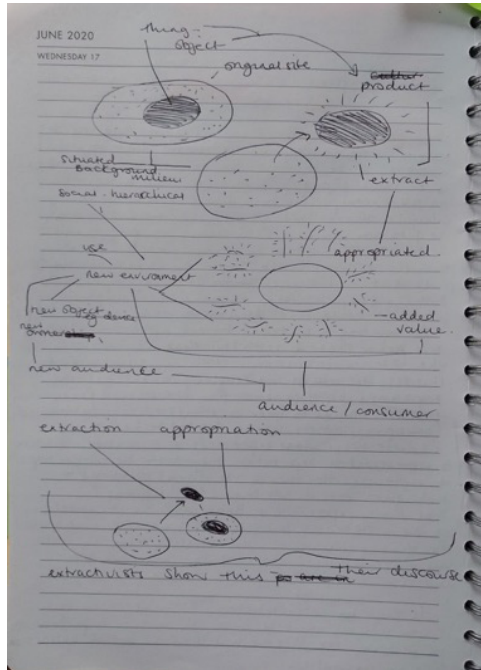 JUNE 2020
WEDNESDAY 17
thing -
object
original site
product
situated
background
milieu
social - hierarchical
extract
appropriated
use
new enviroment
new object
eg dance
new
added
value
new audience
audience / consumer
extraction appropriation
extractivists show this their discourse